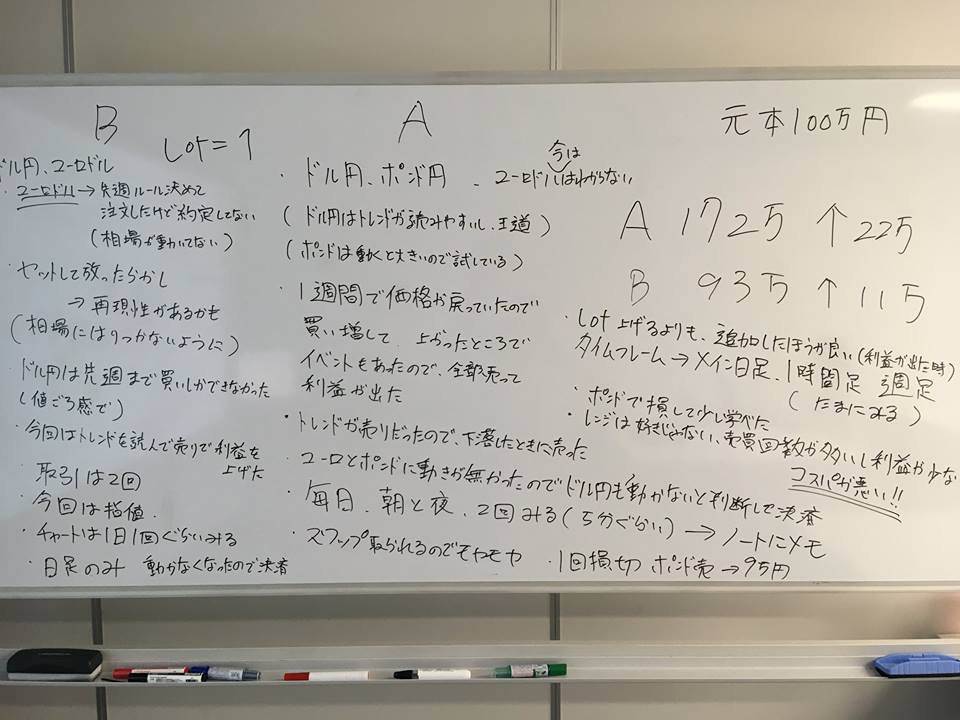 B
Lot = 1
ドル円、ユーロドル
・ユーロドル→先週ルール決めて
注文したけど約定してない
(相場が動いてない)
・セットして放ったらかし
→再現性があるかも
(相場にはりつかないように)
・ドル円は先週まで買いしかできなかった
(値ごろ感で)
・今回はトレンドを読んで売りで利益を
上げた
・取引は2回
・今回は指値.
・チャートは1日1回ぐらいみる
・日足のみ 動かなくなったので決済
A
今は
・ドル円、ポンド円 、ユーロドルはわからない
(ドル円はトレンドが読みやすいし、王道)
(ポンドは動くと大きいので試している)
・1週間で価格が戻っていたので
買い増して、上がったところで
イベントもあったので、全部売って
利益が出た
・トレンドが売りだったので、下落したときに売った
・ユーロとポンドに動きが無かったのでドル円も動かないと判断して決済
・毎日、朝と夜、2回みる(5分ぐらい)→ノートにメモ
・スワップ取られるのでモヤモヤ
・1回損切 ポンド売→9万円
元本100万円
A 172万 ↑22万
B 93万 ↑11万
・Lot 上げるよりも、追加したほうが良い(利益が出た時)
タイムフレーム→メイン日足、1時間足 週足
(たまにみる)
・ポンドで損して少し学べた
・レンジは好きじゃない、売買回数が多いし利益が少な
コスパが悪い!!